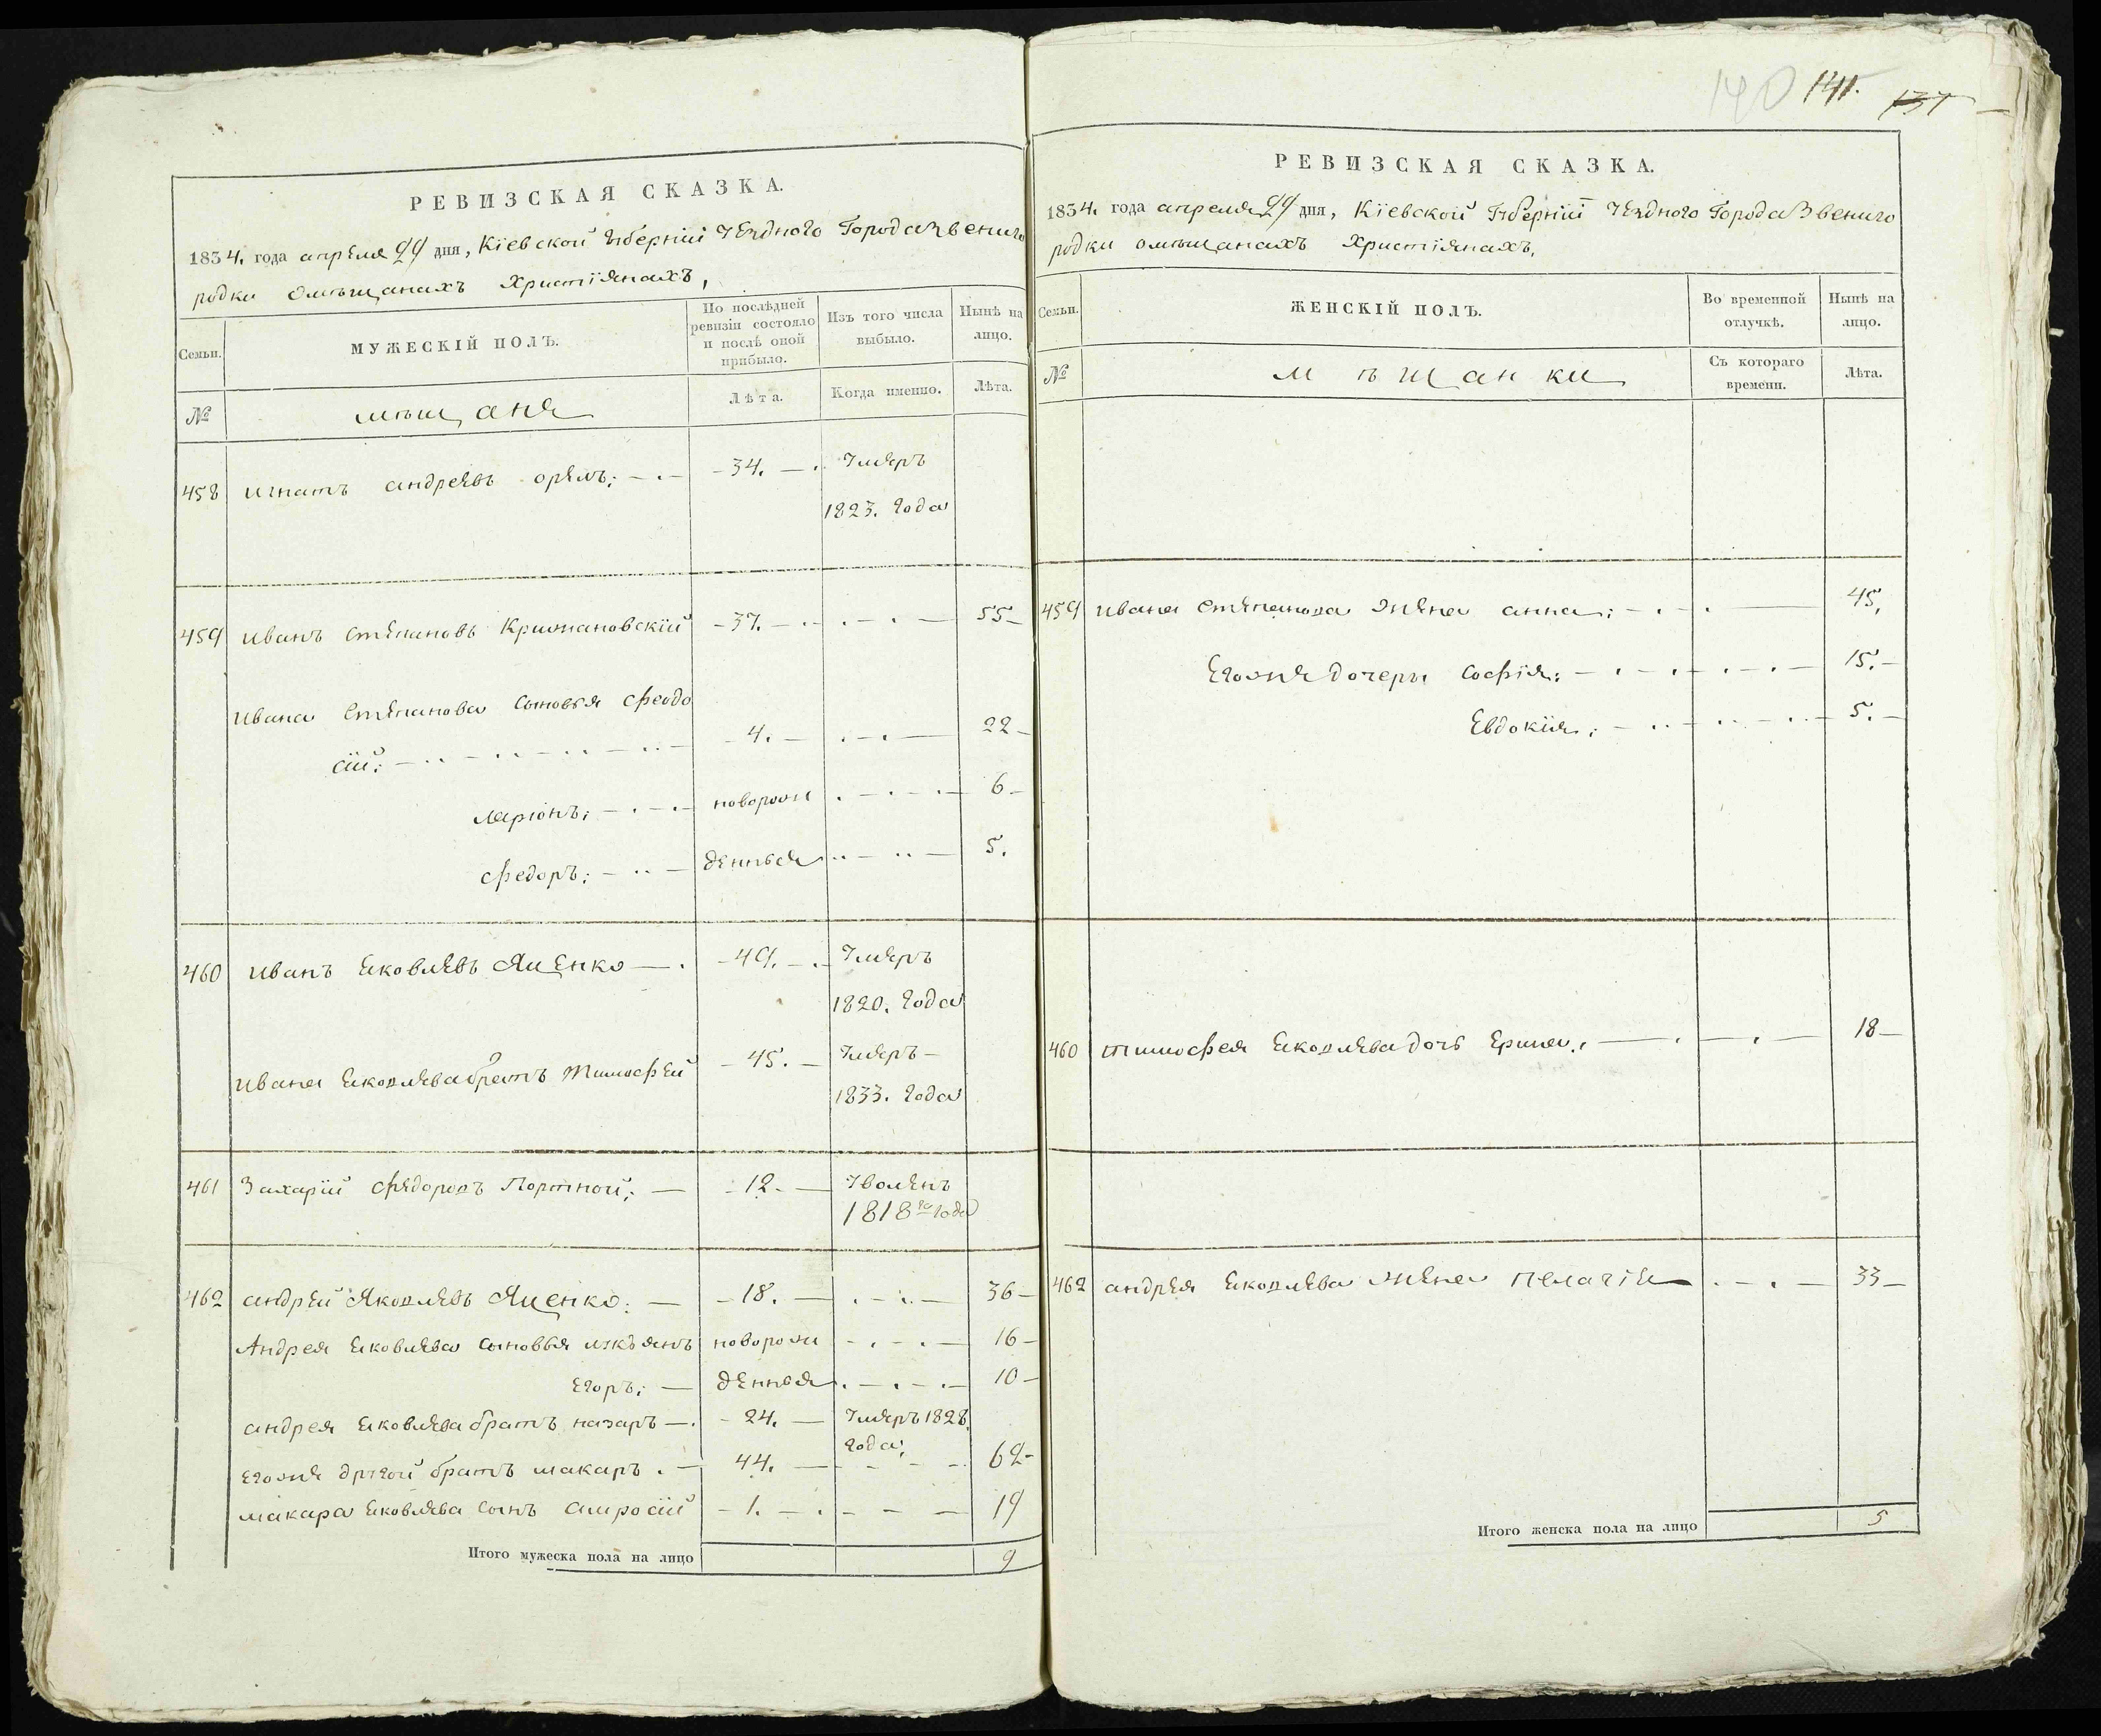 140 141. 137
РЕВИЗСКАЯ СКАЗКА.
1834. года апреля 29 дня, Кіевской Губерніи Уезднаго Города Звениго
родки Омѣщанахъ Христіянахъ,
Семьи.
МУЖЕСКІЙ ПОЛЪ.
По послѣдней ревизіи состояло и послѣ оной прибыло.
Изъ того числа выбыло.
Нынѣ на лицо.
№
мѣщаня
Лѣта.
Когда именно.
Лѣта.
458 игнатъ андреевъ орелъ; 34. Умеръ
1823. года
459 иванъ степановъ Крижановскій 37. 55
ивана степанова сыновья феодо
сій; 4. 22
ларіонъ; новорож 6
федоръ; денныя 5.
460 иванъ Яковлевъ Яценко 49. Умеръ
1820. года
ивана Яковлева братъ тимофей 45. Умеръ
1833. года
461 Захарій федоровъ Портной; 12. Уволенъ
1818го года
462 андрей Яковлевъ Яценко; 18. 36
Андрея Яковлева сыновья новорож 16
Егоръ; денныя 10
андрея Яковлева братъ назаръ 24. Умеръ 1828.
года,
егожя другой братъ макаръ. 44. 62
макара Яковлева сынъ амросій 1. 19
Итого мужеска пола на лицо 9
РЕВИЗСКАЯ СКАЗКА.
1834. года апреля 29 дня, Кіевской Губерніи Уезднаго Города Звениго
родки Омѣщанахъ Христіянахъ,
Семьи.
ЖЕНСКІЙ ПОЛЪ.
Во временной отлучкѣ.
Нынѣ на лицо.
№
мѣщанки
Съ котораго времени.
Лѣта.
459 ивана степанова жена анна; 45,
Егожя дочери софія; 15.
Евдокія; 5.
460 тимофея Яковлева дочь 18
462 андрея Яковлева жена пелагія 33
Итого женска пола на лицо 5